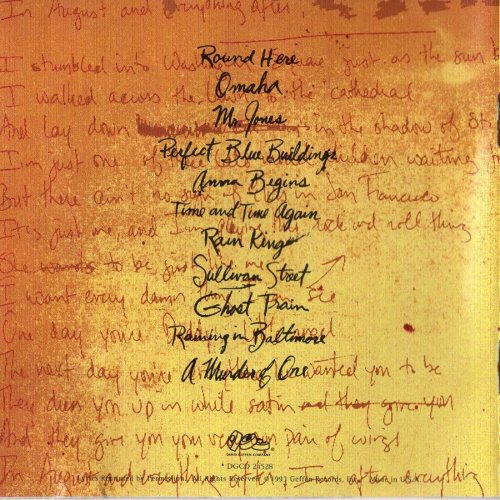 In August and Everything after,
I stumbled into just as the sun
I walked across the to the cathedral
And lay down in the shadow of St
I'm just one of waiting
But there ain't no in San Francisco
It's just me, and I'm playing this rock and roll thing
She wants to be just me
I want every damn
One day you're
The next day you're wanted you to be
They dress you up in white satin and they give you
And they give you your very own pair of wings
In August and Everything after
I'm after everything
Round Here
Omaha
Mr. Jones
Perfect Blue Buildings
Anna Begins
Time and Time Again
Rain King
Sullivan Street
Ghost Train
Raining in Baltimore
A Murder of One
DAVID GEFFEN COMPANY
* DGCD 24528
Lyrics Reprinted by Permission. All Rights Reserved. ©1993 Geffen Records, Inc. Made in U.S.A.